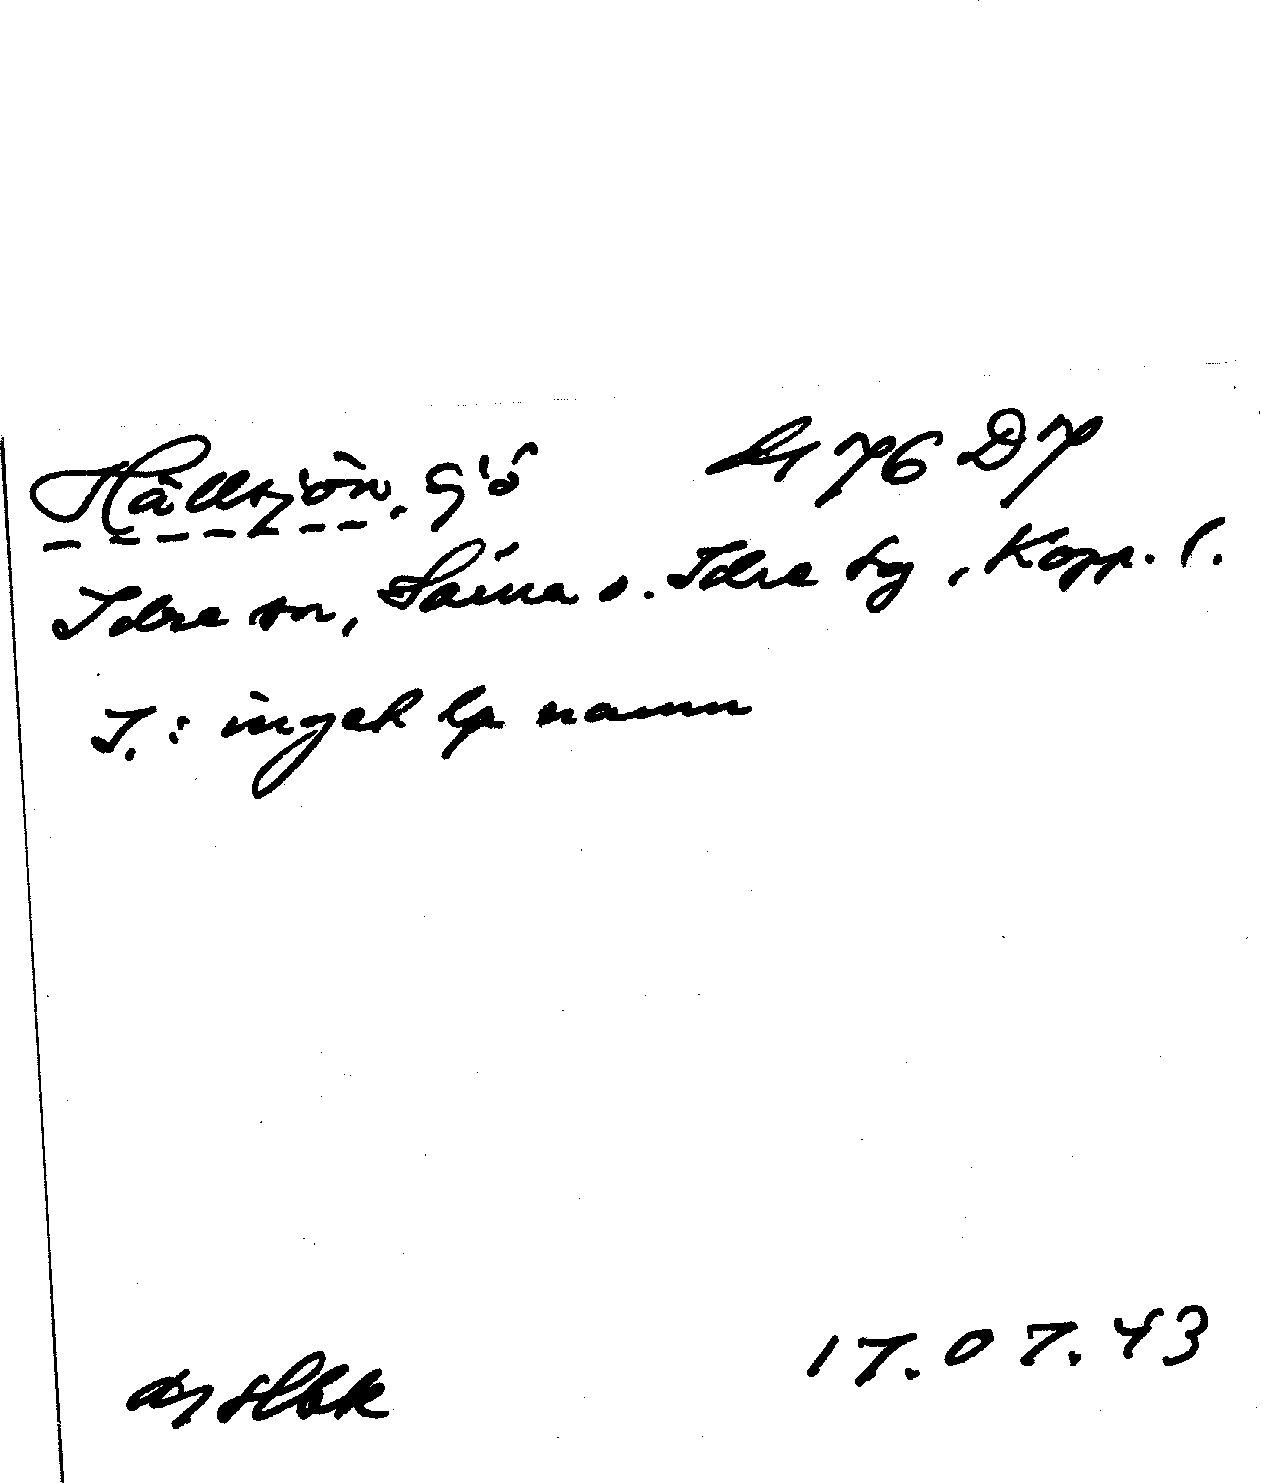 Hällsjön, sjö 76 D7
Idre sn, Särna o. Idre tg, Kopp. l.
I.: inget lp namn
17.07.43